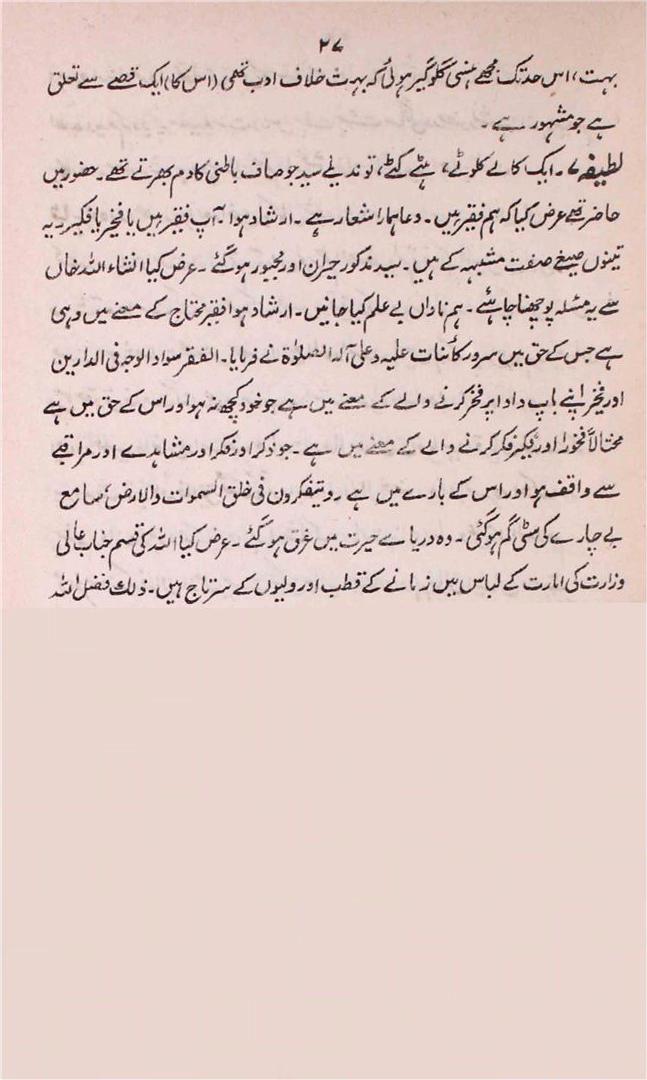 ۲۷
بہت، اس حد تک مجھے ہنسی گلوگیر ہوئی کہ بہت خلاف ادب تھی (اس کا) ایک قصے سے تعلق
ہے جو مشہور ہے۔
لطیفہ ۷۔ ایک کالے کلوٹے، ہٹے کٹے، توندیلے سید جو صاف باطنی کا دم بھرتے تھے۔ حضور میں
حاضر تھے عرض کیا کہ ہم فقیر ہیں۔ دعا ہمارا شعار ہے۔ ارشاد ہوا۔ آپ فقیر ہیں یا فخیر یا فکیر۔ یہ
تینوں صیغے صفت مشبہہ کے ہیں۔ سید مذکور حیران اور مجبور ہو گئے۔ عرض کیا انشاء اللہ خاں
سے یہ مسئلہ پوچھنا چاہئے۔ ہم ناداں بے علم کیا جانیں۔ ارشاد ہوا فقیر محتاج کے معنے میں وہی
ہے جس کے حق میں سرور کائنات علیہ وعلیٰ آلہ الصلوٰۃ نے فرمایا۔ الفقر سواد الوجہ فی الدارین
اور فخیر اپنے باپ دادا پر فخر کرنے والے کے معنے میں ہے جو خود کچھ نہ ہو اور اس کے حق میں ہے
مختالاً فخورا اور فکیر فکر کرنے والے کے معنے میں ہے۔ جو ذکر اور فکر اور مشاہدے اور مراقبے
سے واقف ہو اور اس کے بارے میں ہے۔ ویتفکرون فی خلق السموات والارض، سامع
بے چارے کی سٹی گم ہو گئی۔ وہ دریائے حیرت میں غرق ہو گئے۔ عرض کیا اللہ کی قسم جناب عالی
وزارت کی امارت کے لباس میں زمانے کے قطب اور ولیوں کے سرتاج ہیں۔ ذلک فضل اللہ